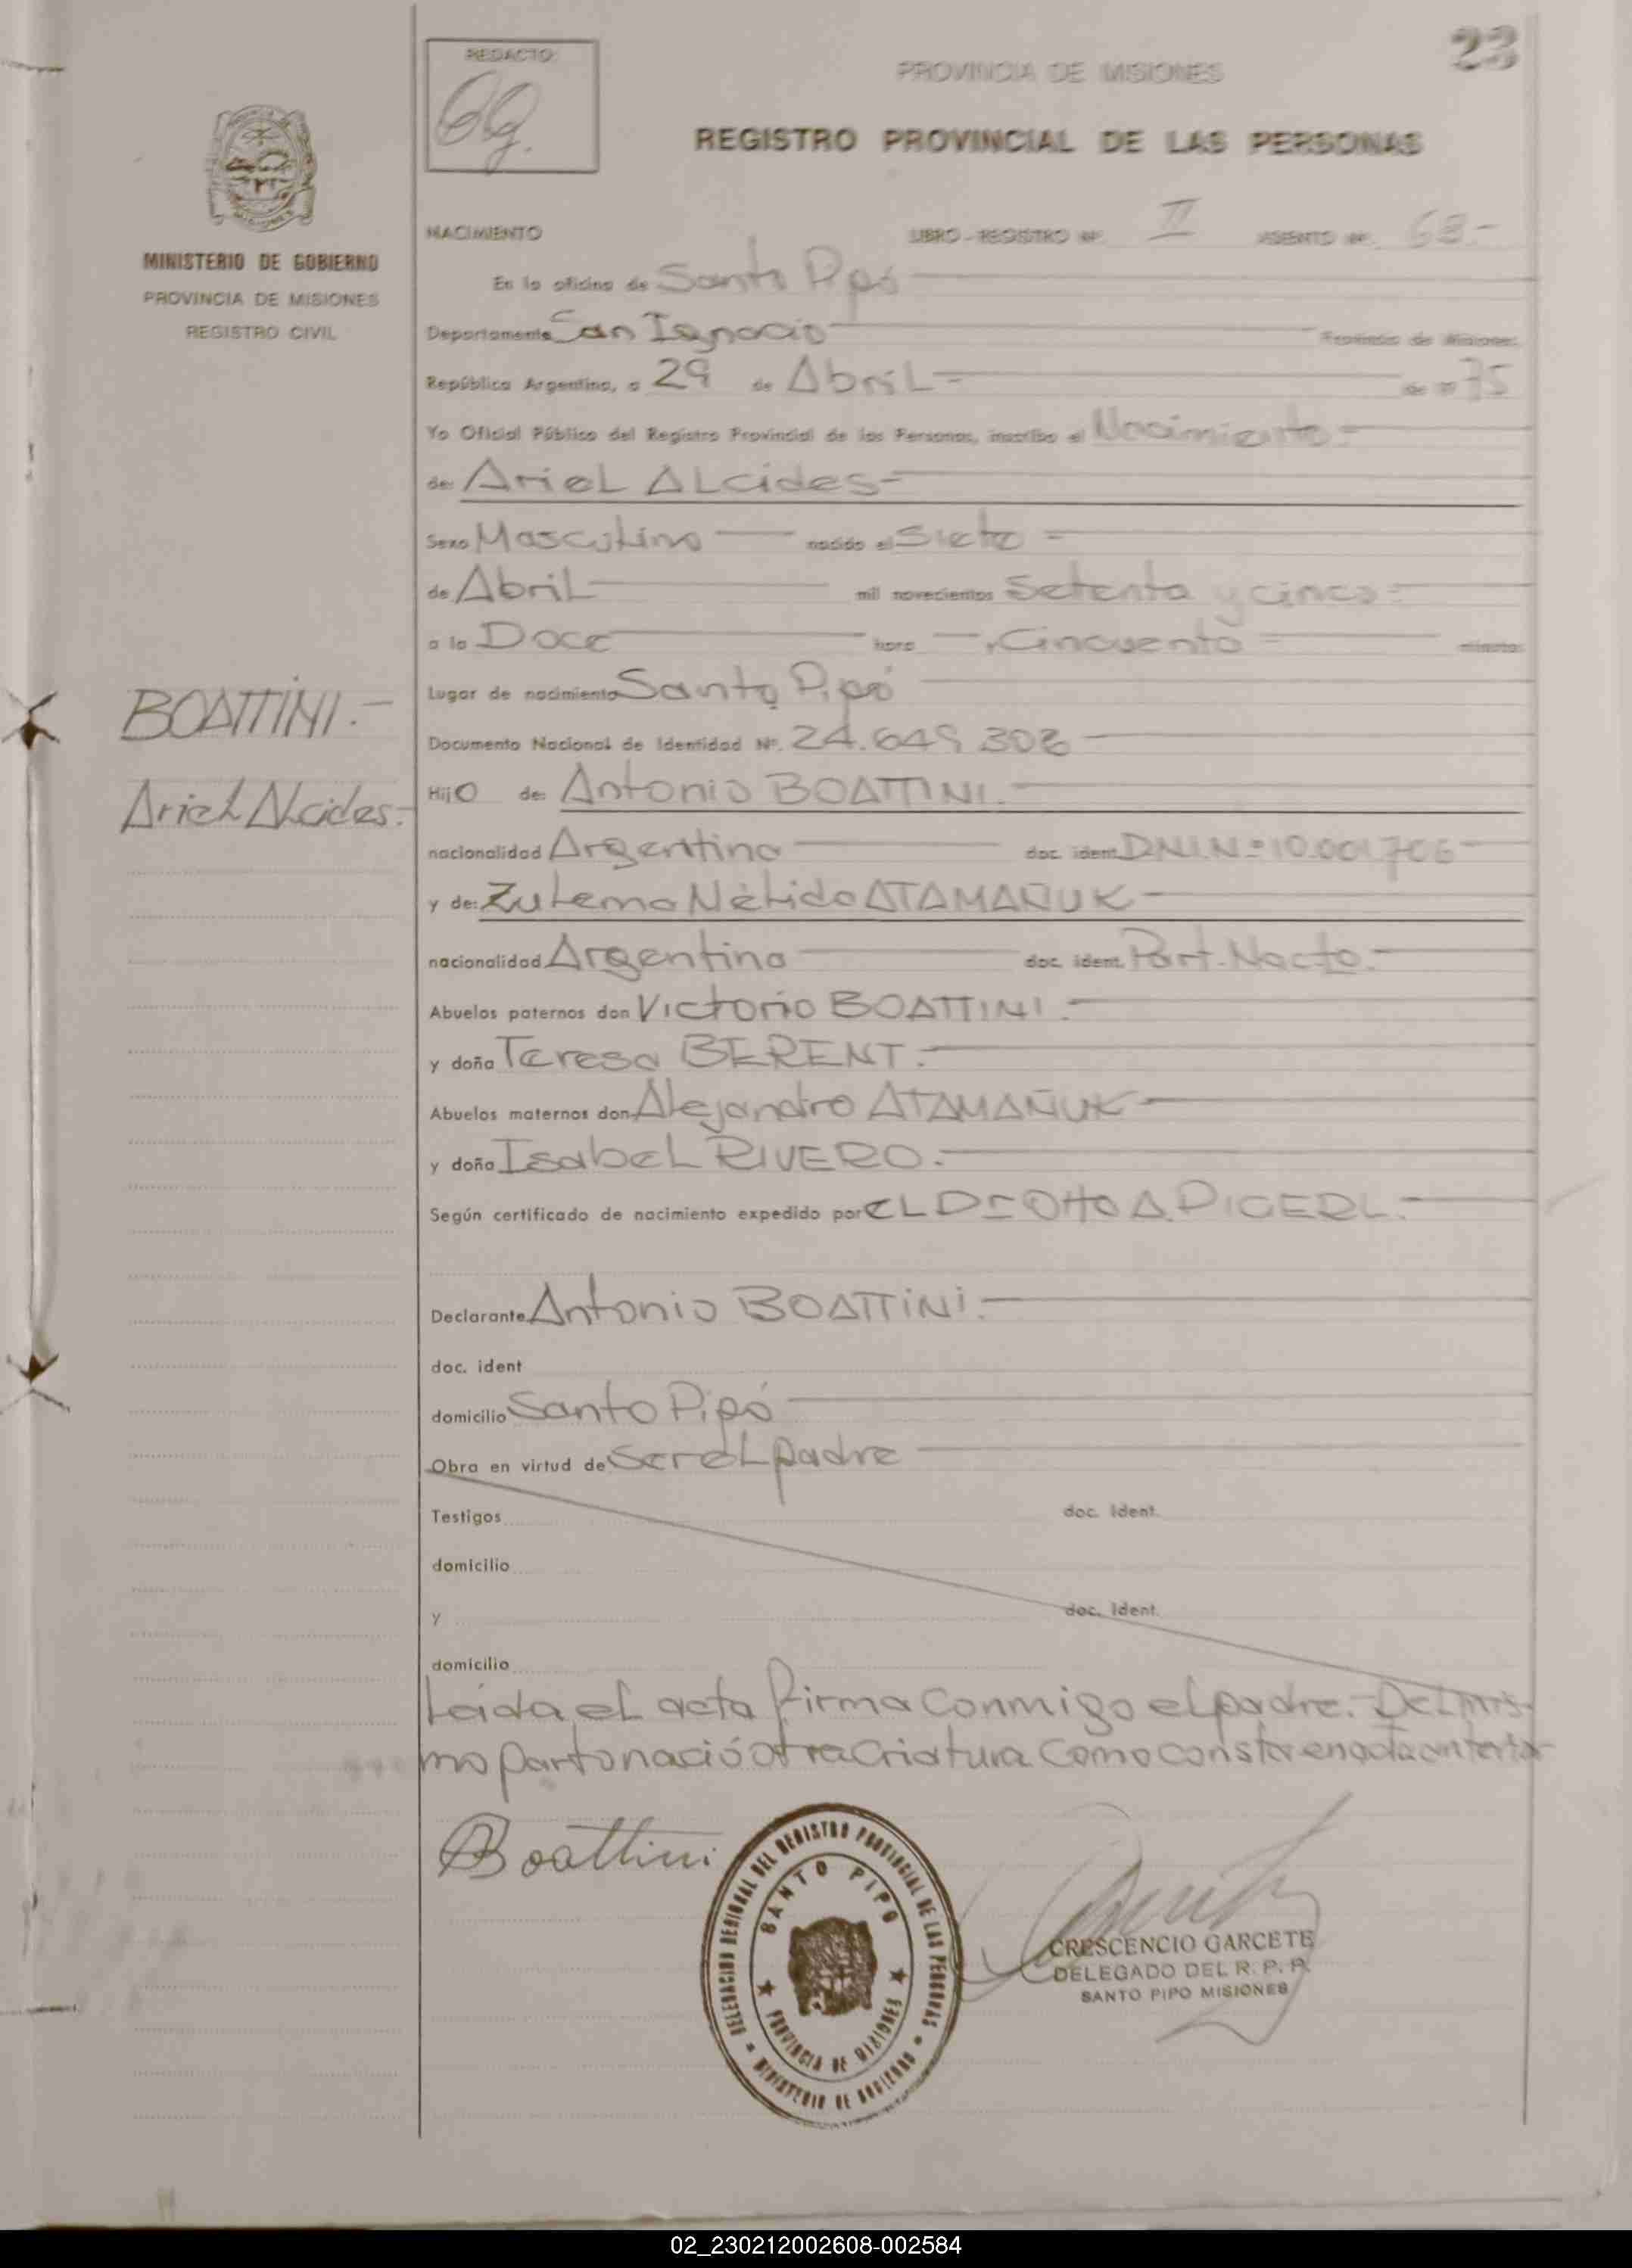 23
REDACTO:
PROVINCIA DE MISIONES
REGISTRO PROVINCIAL DE LAS PERSONAS
MINISTERIO DE GOBIERNO
PROVINCIA DE MISIONES
REGISTRO CIVIL
NACIMIENTO LIBRO - REGISTRO Nº II ASIENTO Nº 68.-
En la oficina de Santo Pipó
Departamento San Ignacio Provincia de Misiones
República Argentina, a 29 de Abril - de 19 75
Yo Oficial Público del Registro Provincial de las Personas, inscribo el Nacimiento -
de: Ariel Alcides-
Sexo Masculino nacido el Siete -
de Abril mil novecientos Setenta y cinco -
a la Doce hora Cincuenta minutos
Lugar de nacimiento Santo Pipó
BOATTINI.-
Documento Nacional de Identidad Nº. 24.649.30
Ariel Alcides.-
Hijo de: Antonio BOATTINI.
nacionalidad Argentina doc. ident. D.N.I. Nº 10.001.706
y de: Zulema Nélida ATAMAÑUK -
nacionalidad Argentina doc. ident. Part. Nacto.-
Abuelos paternos don Victorio BOATTINI.-
y doña Teresa BERENT.-
Abuelos maternos don Alejandro ATAMAÑUK -
y doña Isabel RIVERO.-
Según certificado de nacimiento expedido por el Dr Otto A. PIGERL.-
Declarante Antonio BOATTINI.-
doc. ident
domicilio Santo Pipó
Obra en virtud de Ser el padre
Testigos doc. Ident.
domicilio
y doc. Ident.
domicilio
Leida el acta firma conmigo el padre.- Del mis-
mo parto nació otra criatura como consta en acta anterior
Boattini
DELEGACION REGIONAL DEL REGISTRO PROVINCIAL DE LAS PERSONAS
SANTO PIPO
PROVINCIA DE MISIONES
MINISTERIO DE GOBIERNO
CRESCENCIO GARCETE
DELEGADO DEL R. P. P.
SANTO PIPO MISIONES
02_230212002608-002584